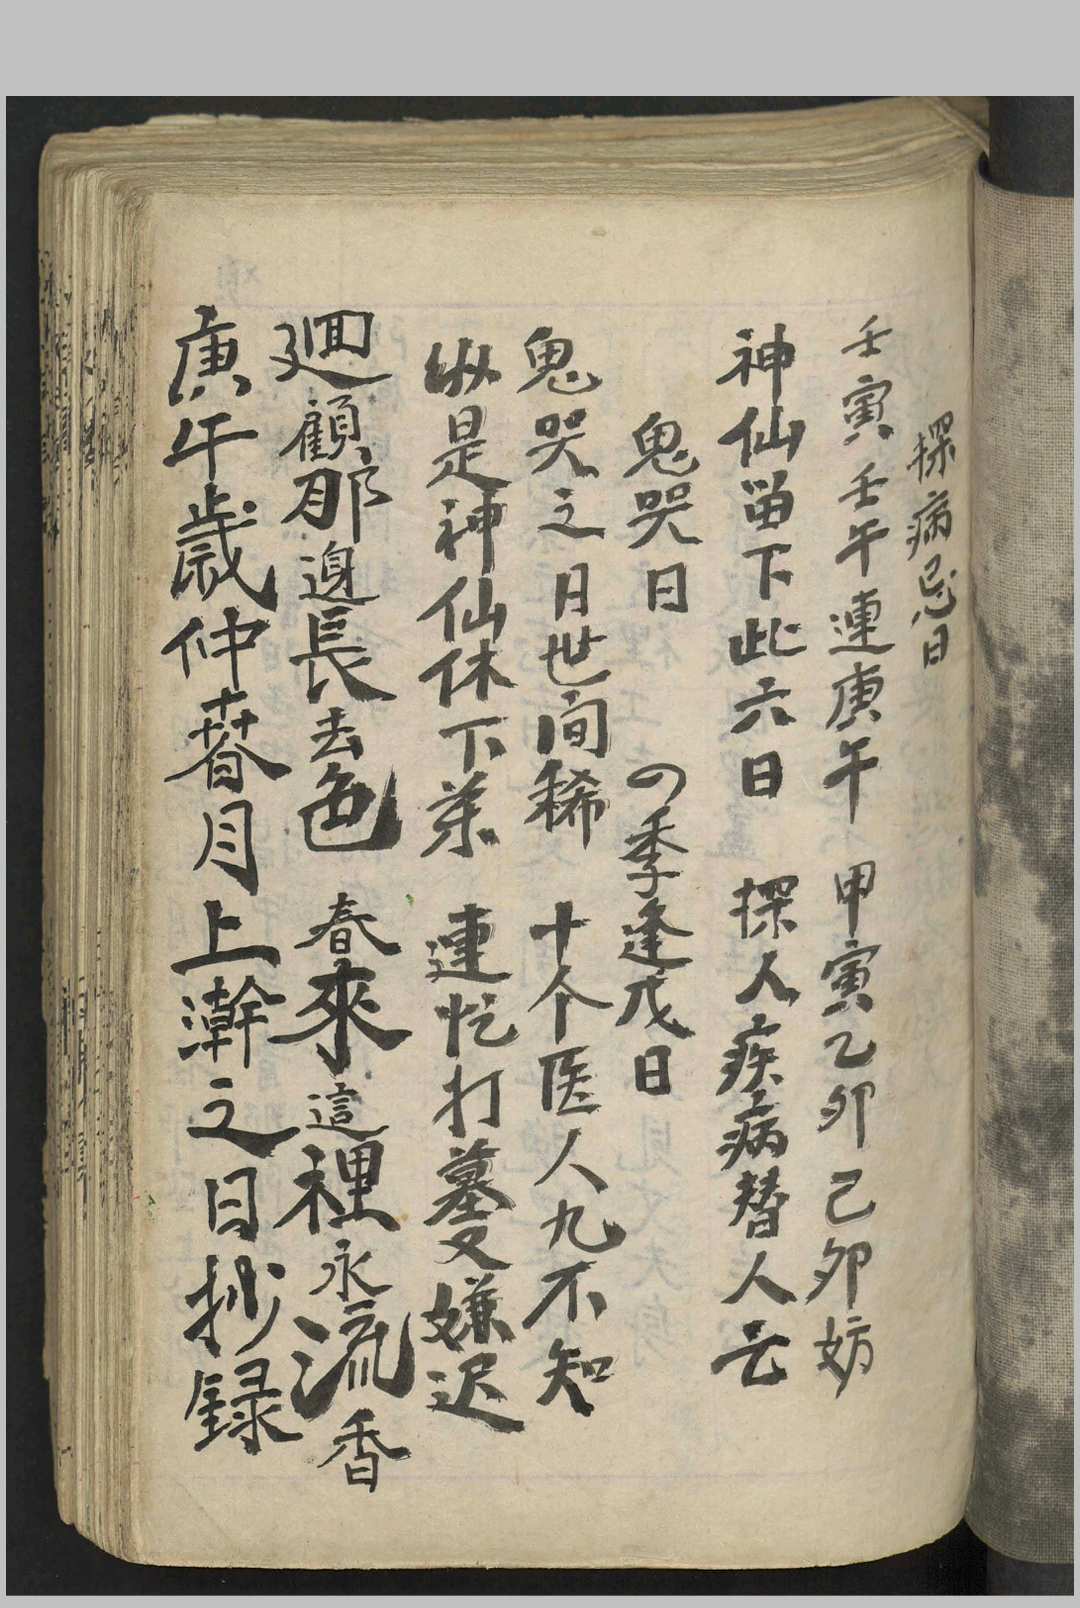 探病忌日
壬寅壬午連庚午 甲寅乙卯己卯妨
神仙留下此六日 探人疾病替人亡
鬼哭日 四季逢戊日
鬼哭之日世間稀 十个医人九不知
縱是神仙休下葯 連忙打墓又嫌迟
廻顧那邉長去色 春來這裡永流香
庚午歲仲春月上澣之日抄録